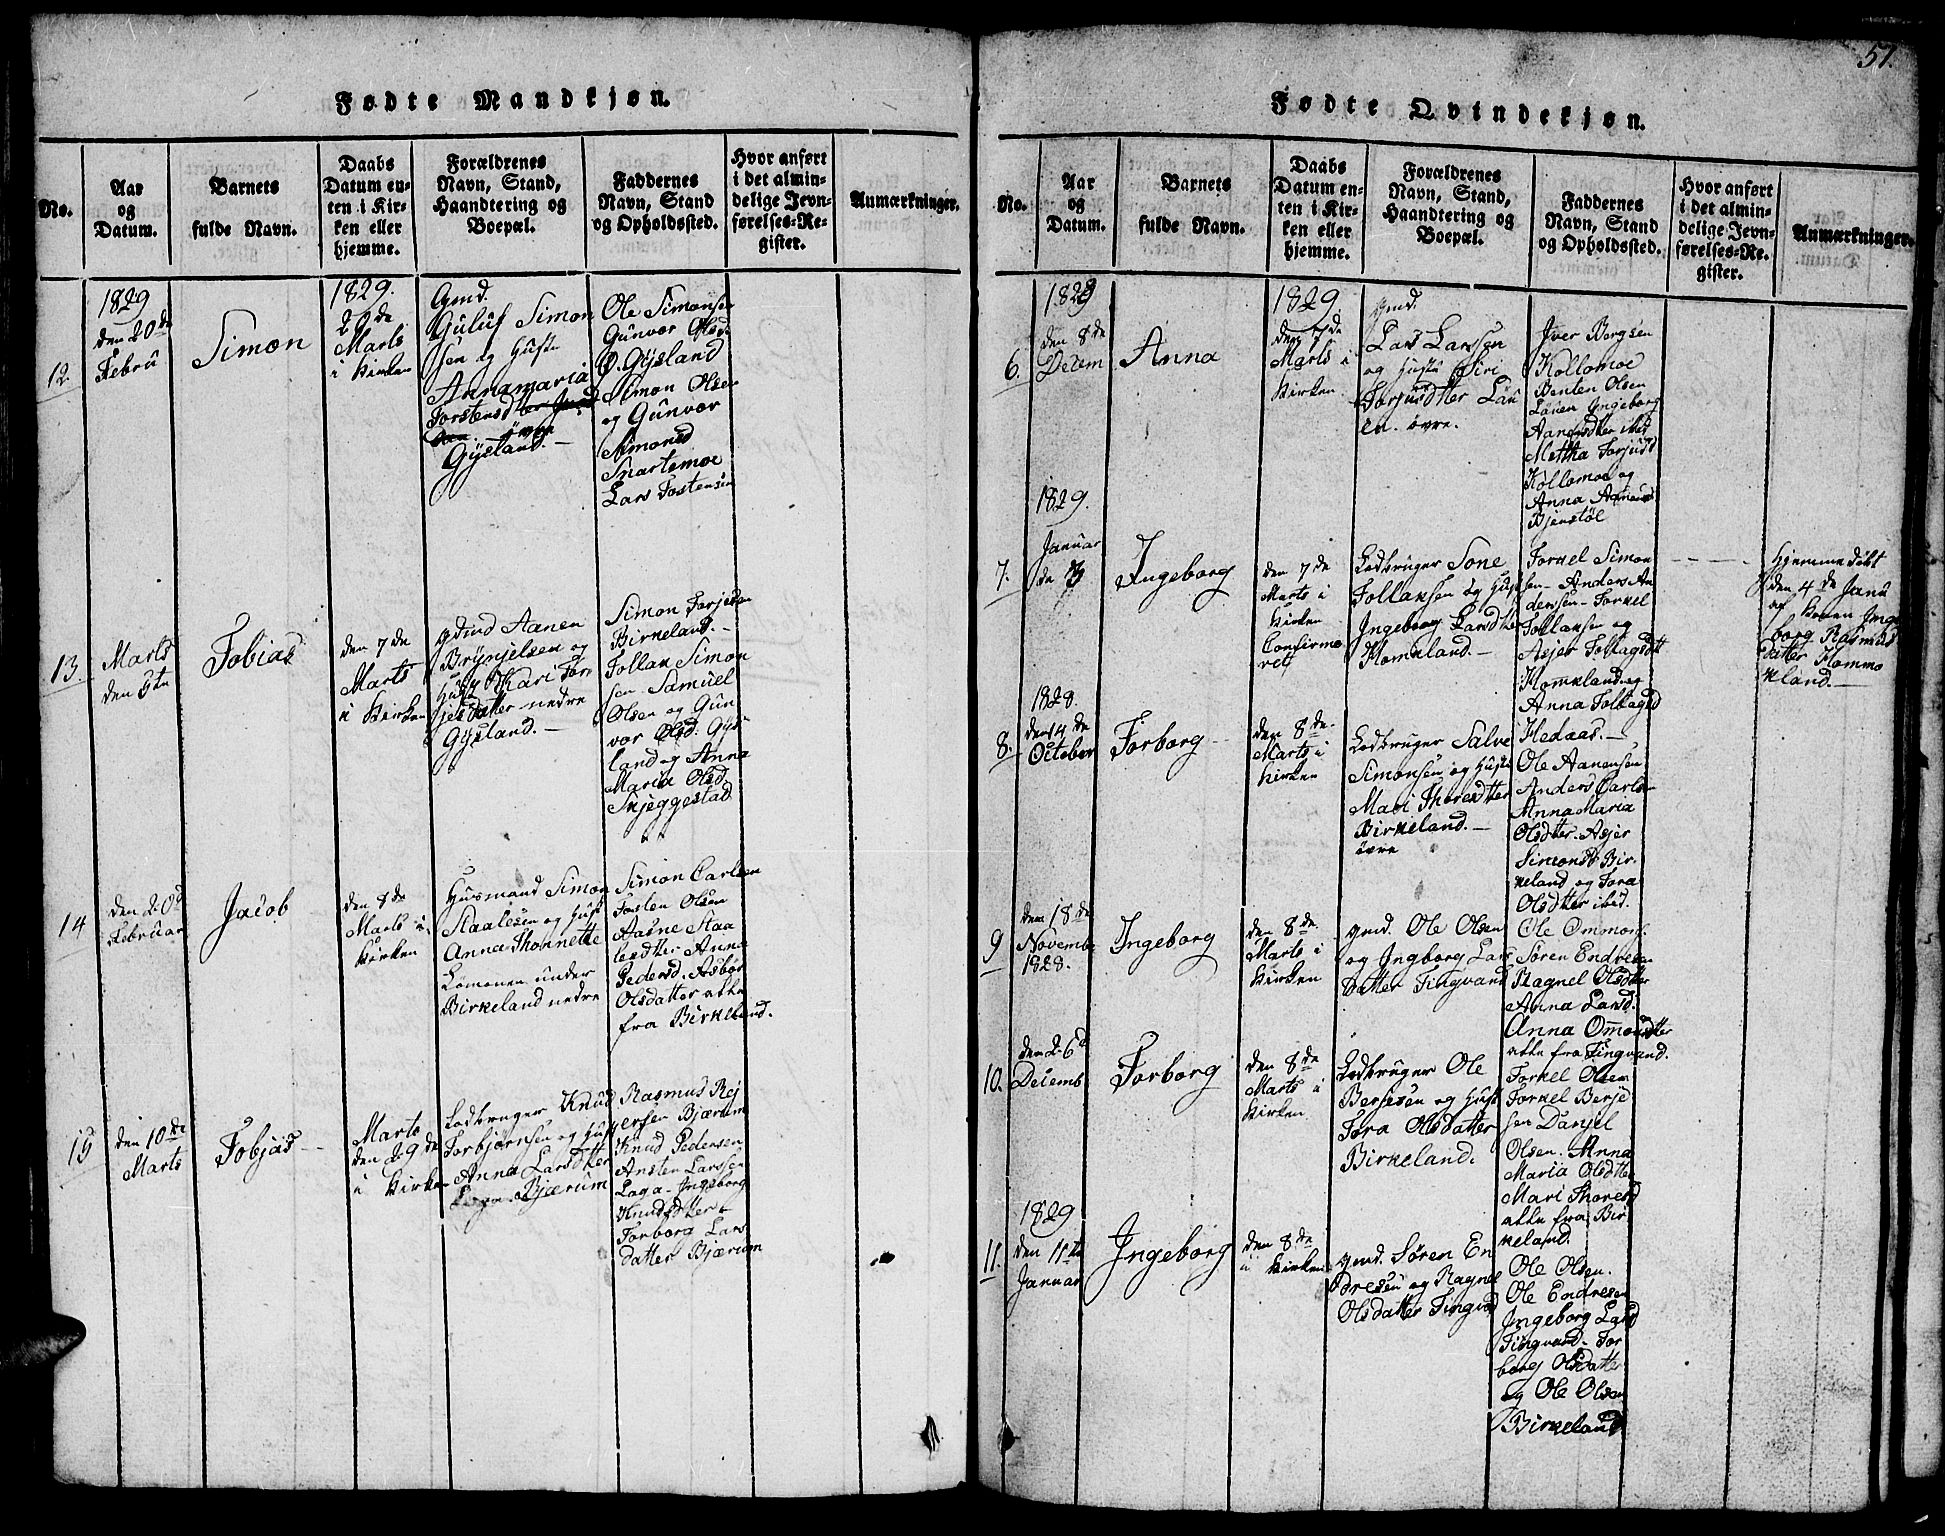 57.
Fødte Mandkjøn.
No.
Aar
og
Datum.
Barnets
fulde Navn.
Daabs
Datum en-
ten i Kir-
ken eller
hjemme.
Forældrenes
Navn, Stand,
Haandtering og
Boepæl.
Faddernes
Navn, Stand
og Opholdssted.
Hvor anført
i det almin-
delige Jevn-
førelses-Re-
gister.
Anmærkninger.
12.
1829
den 20de
Febru
Simon
1829.
29de
Marts
i Kirken
Gmd.
Guluf Simon
sen og Hustr
Annamaria
Torstensd
Gysland.
Ole Simonsen
Gunvor Olsd.
Ø. Gysland
Simon Olsen
og Gunvor
Simonsd
Snartemoe
Lars Tostensen
13.
Marts
den 5te
Tobias
den 7de
Marts
i Kirken
gdmd Aanen
Brynjelsen og
Hust Kari Tor
jesdatter nedre
Gysland.
Simon Torjesen
Birkeland.
Tollak Simon
sen. Samuel
Olsen og Gun
vor Olsd. Gys
land og Anna
Maria Olsd.
Skjeggestad
14
den 20d
Februar
Jacob
den 8de
Marts i
Kirken
Husmand Simon
Staalesen og Hust
Anna Thonnette
Lømonen under
Birkeland nedre
Simon Carlsen
Torsten Olsen
Aasne Staa
lesdtter Anna
Pedersd. Asbør
Olsdatter alle
fra Birkeland.
15
den 10de
Marts
Tobjas
Marts
den 29de
i Kirken
Ledbruger Knud
Torbjørnsen og Hust
Anna Larsdtter
Bjærum
Rasmus Rej
ersen Bjærum
Knud Pedersen
Ansten Larssen
Laga. Ingeborg
Knudsdtter
Torborg Lars
datter Bjærum
Fødte Qvindekjøn.
No.
Aar
og
Datum.
Barnets
fulde Navn.
Daabs
Datum en-
ten i Kir-
ken eller
hjemme.
Forældrenes
Navn, Stand,
Haandtering og
Boepæl.
Faddernes
Navn, Stand
og Opholdssted.
Hvor anført
i det almin-
delige Jevn-
førelses-Re-
gister.
Anmærkninger.
6.
1828
den 8de
Decem
Anna
1829
den 7de
Marts i
Kirken
gmd.
Lars Larssen
og Hustr Siri
Torjusdtter Lau
en. øvre.
Jver Bergsen
Kollomoe
Benten Olsen
Lauen Ingeborg
Aanensdtter ibid
Mettha Torjusd
Kollomoe og
Anna Aanensd
Bjenstøl
7.
1829.
Januar
de 3
Ingeborg
den 7de
Marts i
Kirken
Confirme
ret
Ledbruger Sone
Tollaksen og Hust
Ingeborg Larsdtter
Homkland.
Torkel Simon
sen. Anders An
derssen. Torkel
Tollaksen og
Asjer Tollagsdtt
Homkland og
Anna Tollagsd
Hedaas.
Hjemmedøbt
den 4de Janu
af Konen Inge
borg Rasmus
datter Homme
kland.
8.
1828.
den 14de
October
Torborg
den 8de
Marts i
Kirken
Ledbruger Salve
Simonsen og Hustr
Mari Thoresdtter
Birkeland.
øvre
Ole Aanensen
Anders Carlsen
Anna Maria
Olsdtter. Asjer
Simonsd. Bir-
keland og Tora
Olsdtter ibid.
9
den 18de
Novemb
1828.
Ingeborg
den 8de
Marts i
Kirken
gmd. Ole Olsen
og Ingborg Lars
datter Tingvand
Ole Ommons.
Søren Endresen
Ragnel Olsdtter
Anna Larsd.
Anna Omondsdtter
alle fra Tingvand.
10.
den 26d
Decemb
Torborg
den 8de
Marts i
Kirken
Ledbruger Ole
Berjesen og Hust
Tora Olsdatter
Birkeland.
Torkel Olsen
Torkel Berje
sen Danjel
Olsen. Anna
Maria Olsdtter
Mari Thoresd
alle fra Bir
keland.
11.
1829
den 11te
Januar
Ingeborg
den 8de
i Kirken
gmd. Søren En
dresen og Ragnel
Olsdatter Tingvd
Ole Olsen.
Ole Endresen
Ingeborg Larsd
Tingvand. Tor
borg Olsdatter
og Ole Olsen
Birkeland